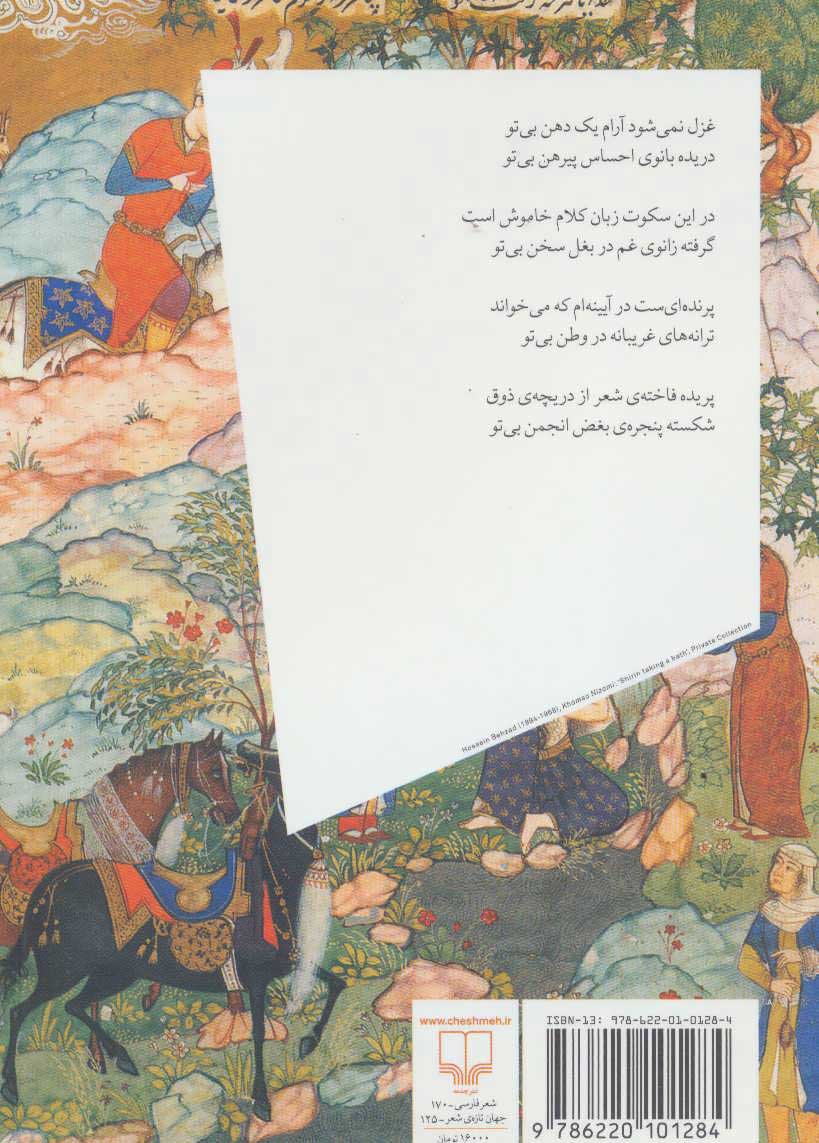 غزل نمی‌شود آرام یک دهن بی‌تو
دریده بانوی احساس پیرهن بی‌تو
در این سکوت زبان کلام خاموش است
گرفته زانوی غم در بغل سخن بی‌تو
پرنده‌ای‌ست در آیینه‌ام که می‌خواند
ترانه‌های غریبانه در وطن بی‌تو
پریده فاخته‌ی شعر از دریچه‌ی ذوق
شکسته پنجره‌ی بغض انجمن بی‌تو
Hossein Behzad (1894-1968), Khamse Nizami: 'Shirin taking a bath', Private Collection
www.cheshmeh.ir
نشر چشمه
شعر فارسی-۱۷۰
جهان تازه‌ی شعر-۱۲۵
۱۶۰۰۰ تومان
ISBN-13: 978-622-01-0128-4
9 786220 101284